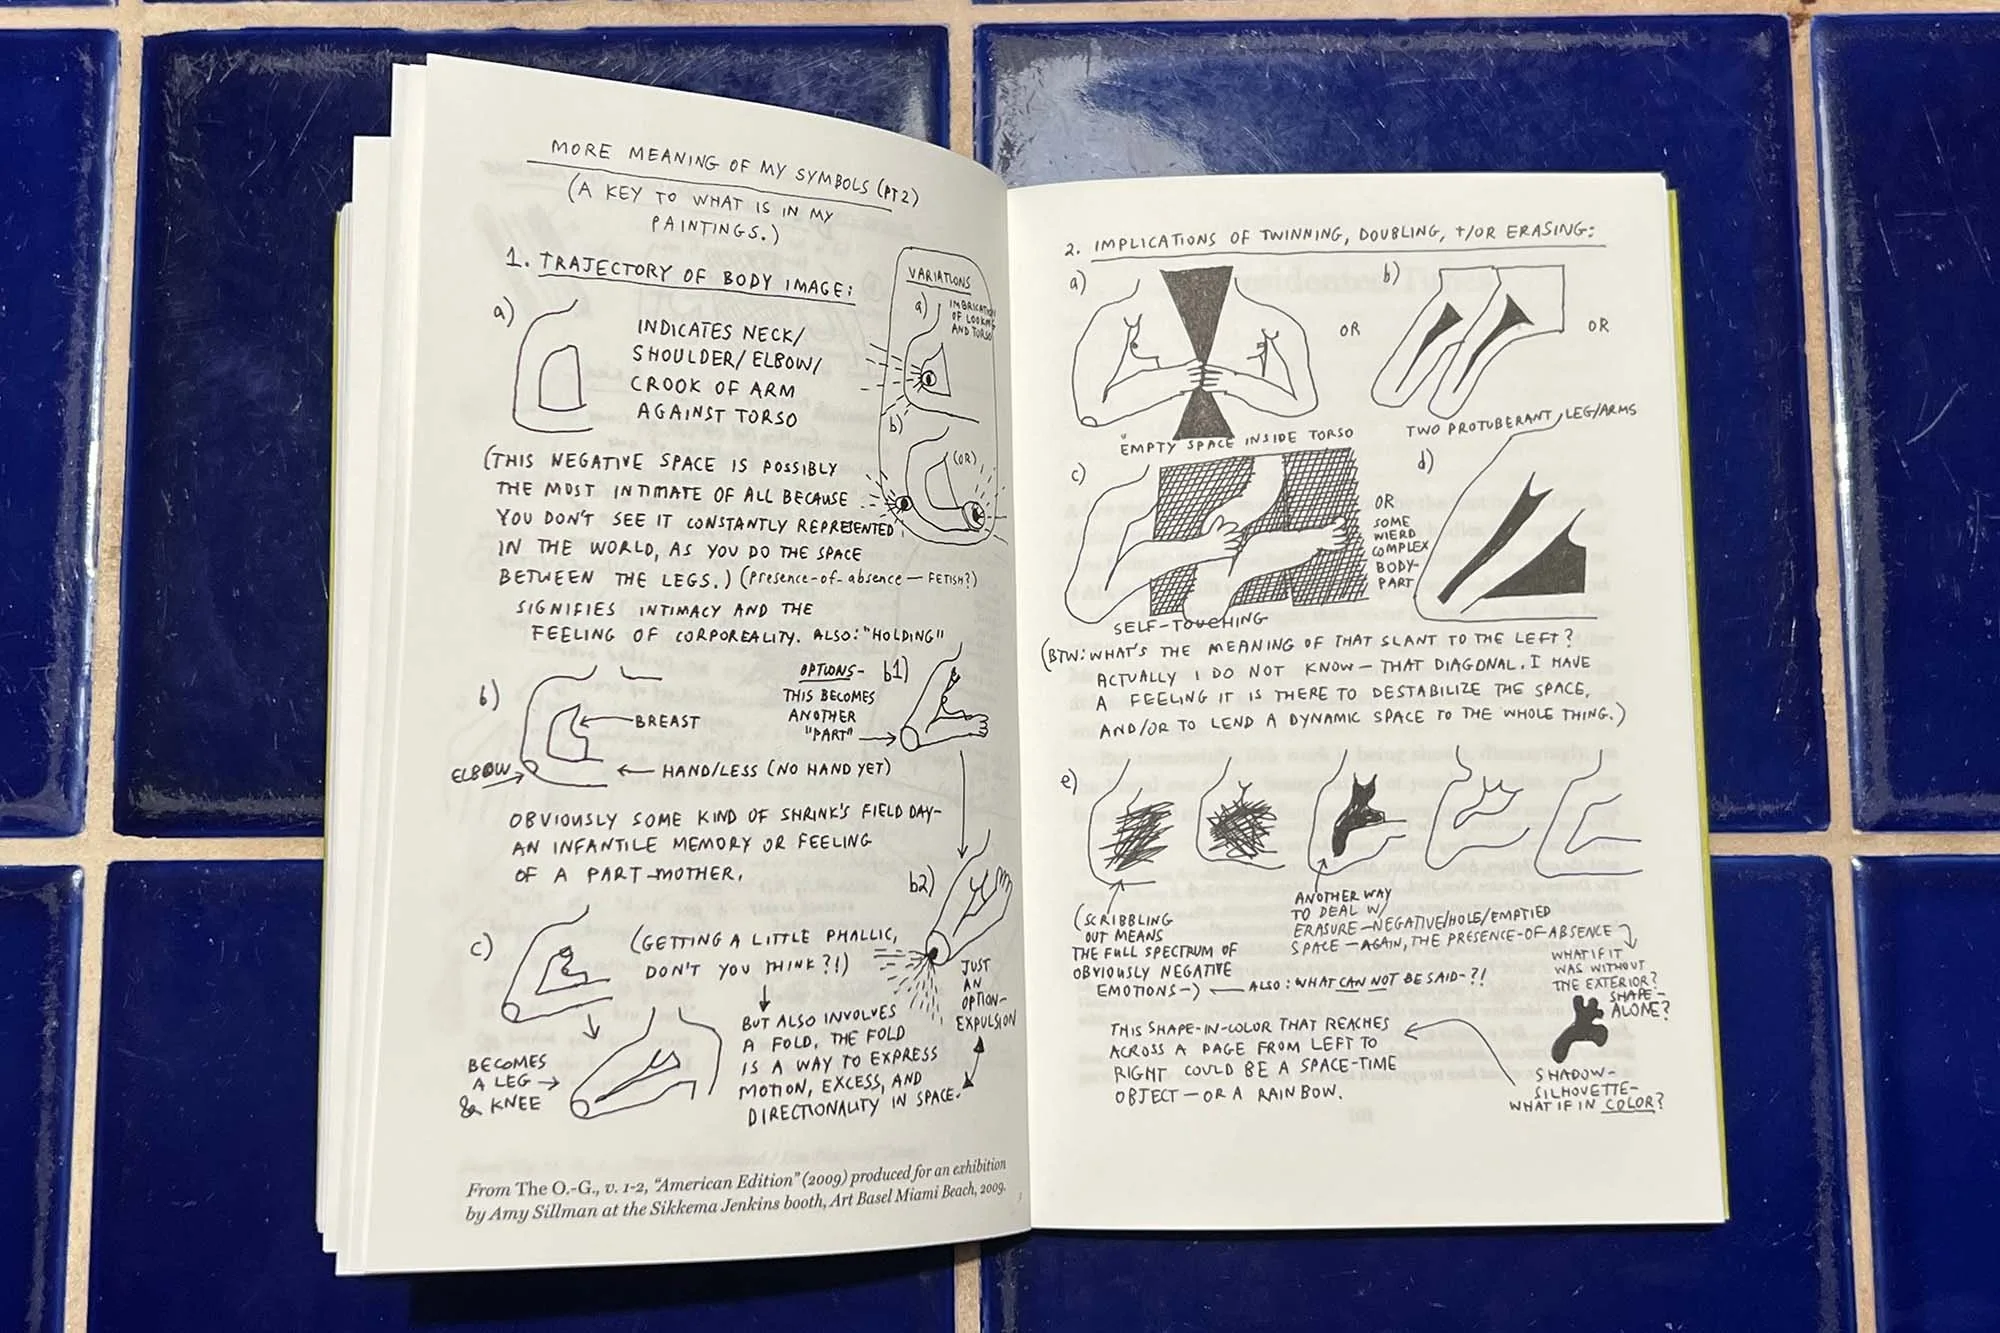 MORE MEANING OF MY SYMBOLS (PT 2)
(A KEY TO WHAT IS IN MY
PAINTINGS.)
1. TRAJECTORY OF BODY IMAGE:
a)
INDICATES NECK/
SHOULDER/ELBOW/
CROOK OF ARM
AGAINST TORSO
VARIATIONS
a)
IMBRICATION
OF LOOKING
AND TORSO
b)
(OR)
(THIS NEGATIVE SPACE IS POSSIBLY
THE MOST INTIMATE OF ALL BECAUSE
YOU DON'T SEE IT CONSTANTLY REPRESENTED
IN THE WORLD, AS YOU DO THE SPACE
BETWEEN THE LEGS.) (presence-of-absence — FETISH?)
SIGNIFIES INTIMACY AND THE
FEELING OF CORPOREALITY. ALSO: "HOLDING"
b)
BREAST
ELBOW
HAND/LESS (NO HAND YET)
OPTIONS- b1)
THIS BECOMES
ANOTHER
"PART"
OBVIOUSLY SOME KIND OF SHRINK'S FIELD DAY-
AN INFANTILE MEMORY OR FEELING
OF A PART-MOTHER.
b2)
c)
(GETTING A LITTLE PHALLIC,
DON'T YOU THINK?!)
JUST
AN
OPTION-
EXPULSION
BECOMES
A LEG
& KNEE
BUT ALSO INVOLVES
A FOLD. THE FOLD
IS A WAY TO EXPRESS
MOTION, EXCESS, AND
DIRECTIONALITY IN SPACE.
From The O.-G., v. 1-2, "American Edition" (2009) produced for an exhibition
by Amy Sillman at the Sikkema Jenkins booth, Art Basel Miami Beach, 2009.
2. IMPLICATIONS OF TWINNING, DOUBLING, +/OR ERASING:
a)
OR
b)
OR
"EMPTY SPACE INSIDE TORSO
TWO PROTUBERANT LEG/ARMS
c)
OR
SOME
WIERD
COMPLEX
BODY-
PART
d)
SELF-TOUCHING
(BTW: WHAT'S THE MEANING OF THAT SLANT TO THE LEFT?
ACTUALLY I DO NOT KNOW — THAT DIAGONAL. I HAVE
A FEELING IT IS THERE TO DESTABILIZE THE SPACE,
AND/OR TO LEND A DYNAMIC SPACE TO THE WHOLE THING.)
e)
(SCRIBBLING
OUT MEANS
THE FULL SPECTRUM OF
OBVIOUSLY NEGATIVE
EMOTIONS-)
ANOTHER WAY
TO DEAL W/
ERASURE—NEGATIVE/HOLE/EMPTIED
SPACE—AGAIN, THE PRESENCE-OF-ABSENCE
ALSO: WHAT CAN NOT BE SAID-?!
WHAT IF IT
WAS WITHOUT
THE EXTERIOR?
SHAPE-
ALONE?
THIS SHAPE-IN-COLOR THAT REACHES
ACROSS A PAGE FROM LEFT TO
RIGHT COULD BE A SPACE-TIME
OBJECT — OR A RAINBOW.
SHADOW-
SILHOUETTE-
WHAT IF IN COLOR?